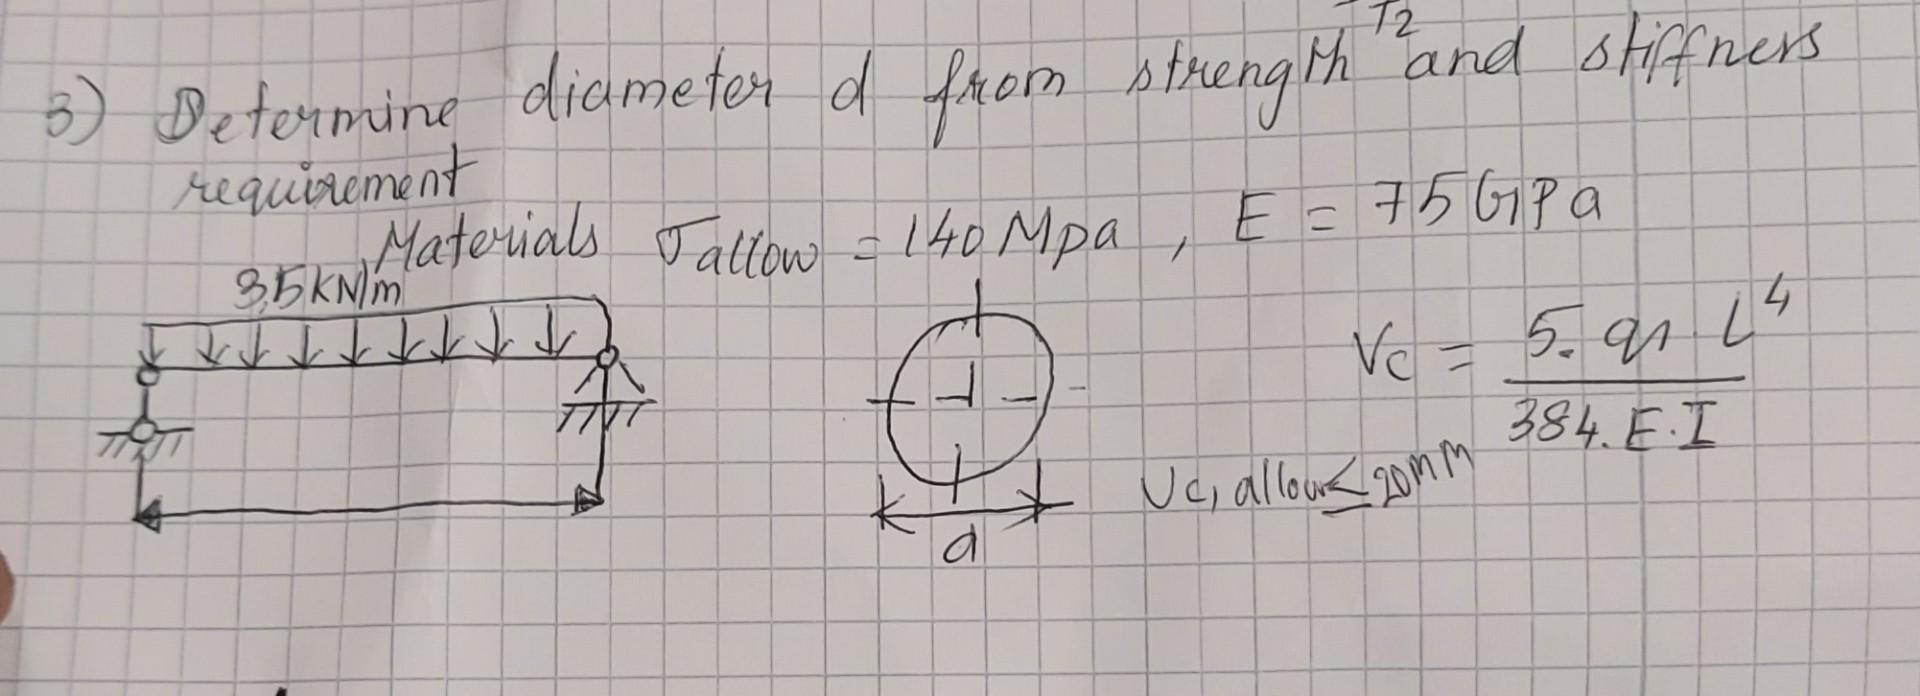 T2
3) Determine diameter d from strength and stiffness
requirement
Materials σallow = 140 Mpa , E = 75 GPa
3,5kN/m
Vc = 5. q. L⁴ / 384. E. I
Vc, allow ≤ 20mm
d